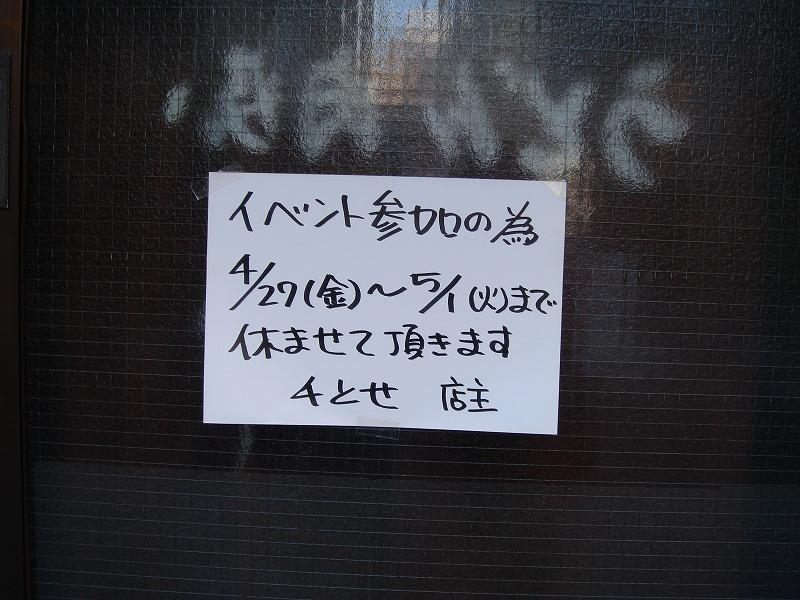 イベント参加の為
4/27(金)～5/1(火)まで
休ませて頂きます
ちとせ 店主